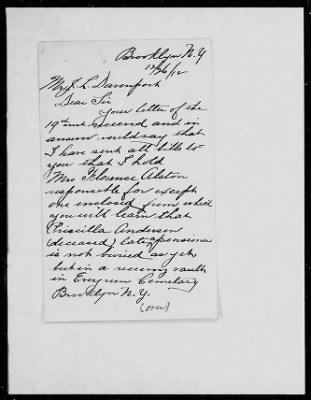 Brooklyn N.Y
12/26/12
Mr J. L. Davenport
Dear Sir
Your letter of the
19th inst received and in
answer would say that
I have sent all bills to
you that I hold
Mrs Florence Alston
responsible for except
one enclosed from which
you will learn that
Priscilla Andersen
(deceased) late a pensioner
is not buried as yet
but in a receiving vault
in Evergreen Cemetary
Brooklyn N.Y.
(over)